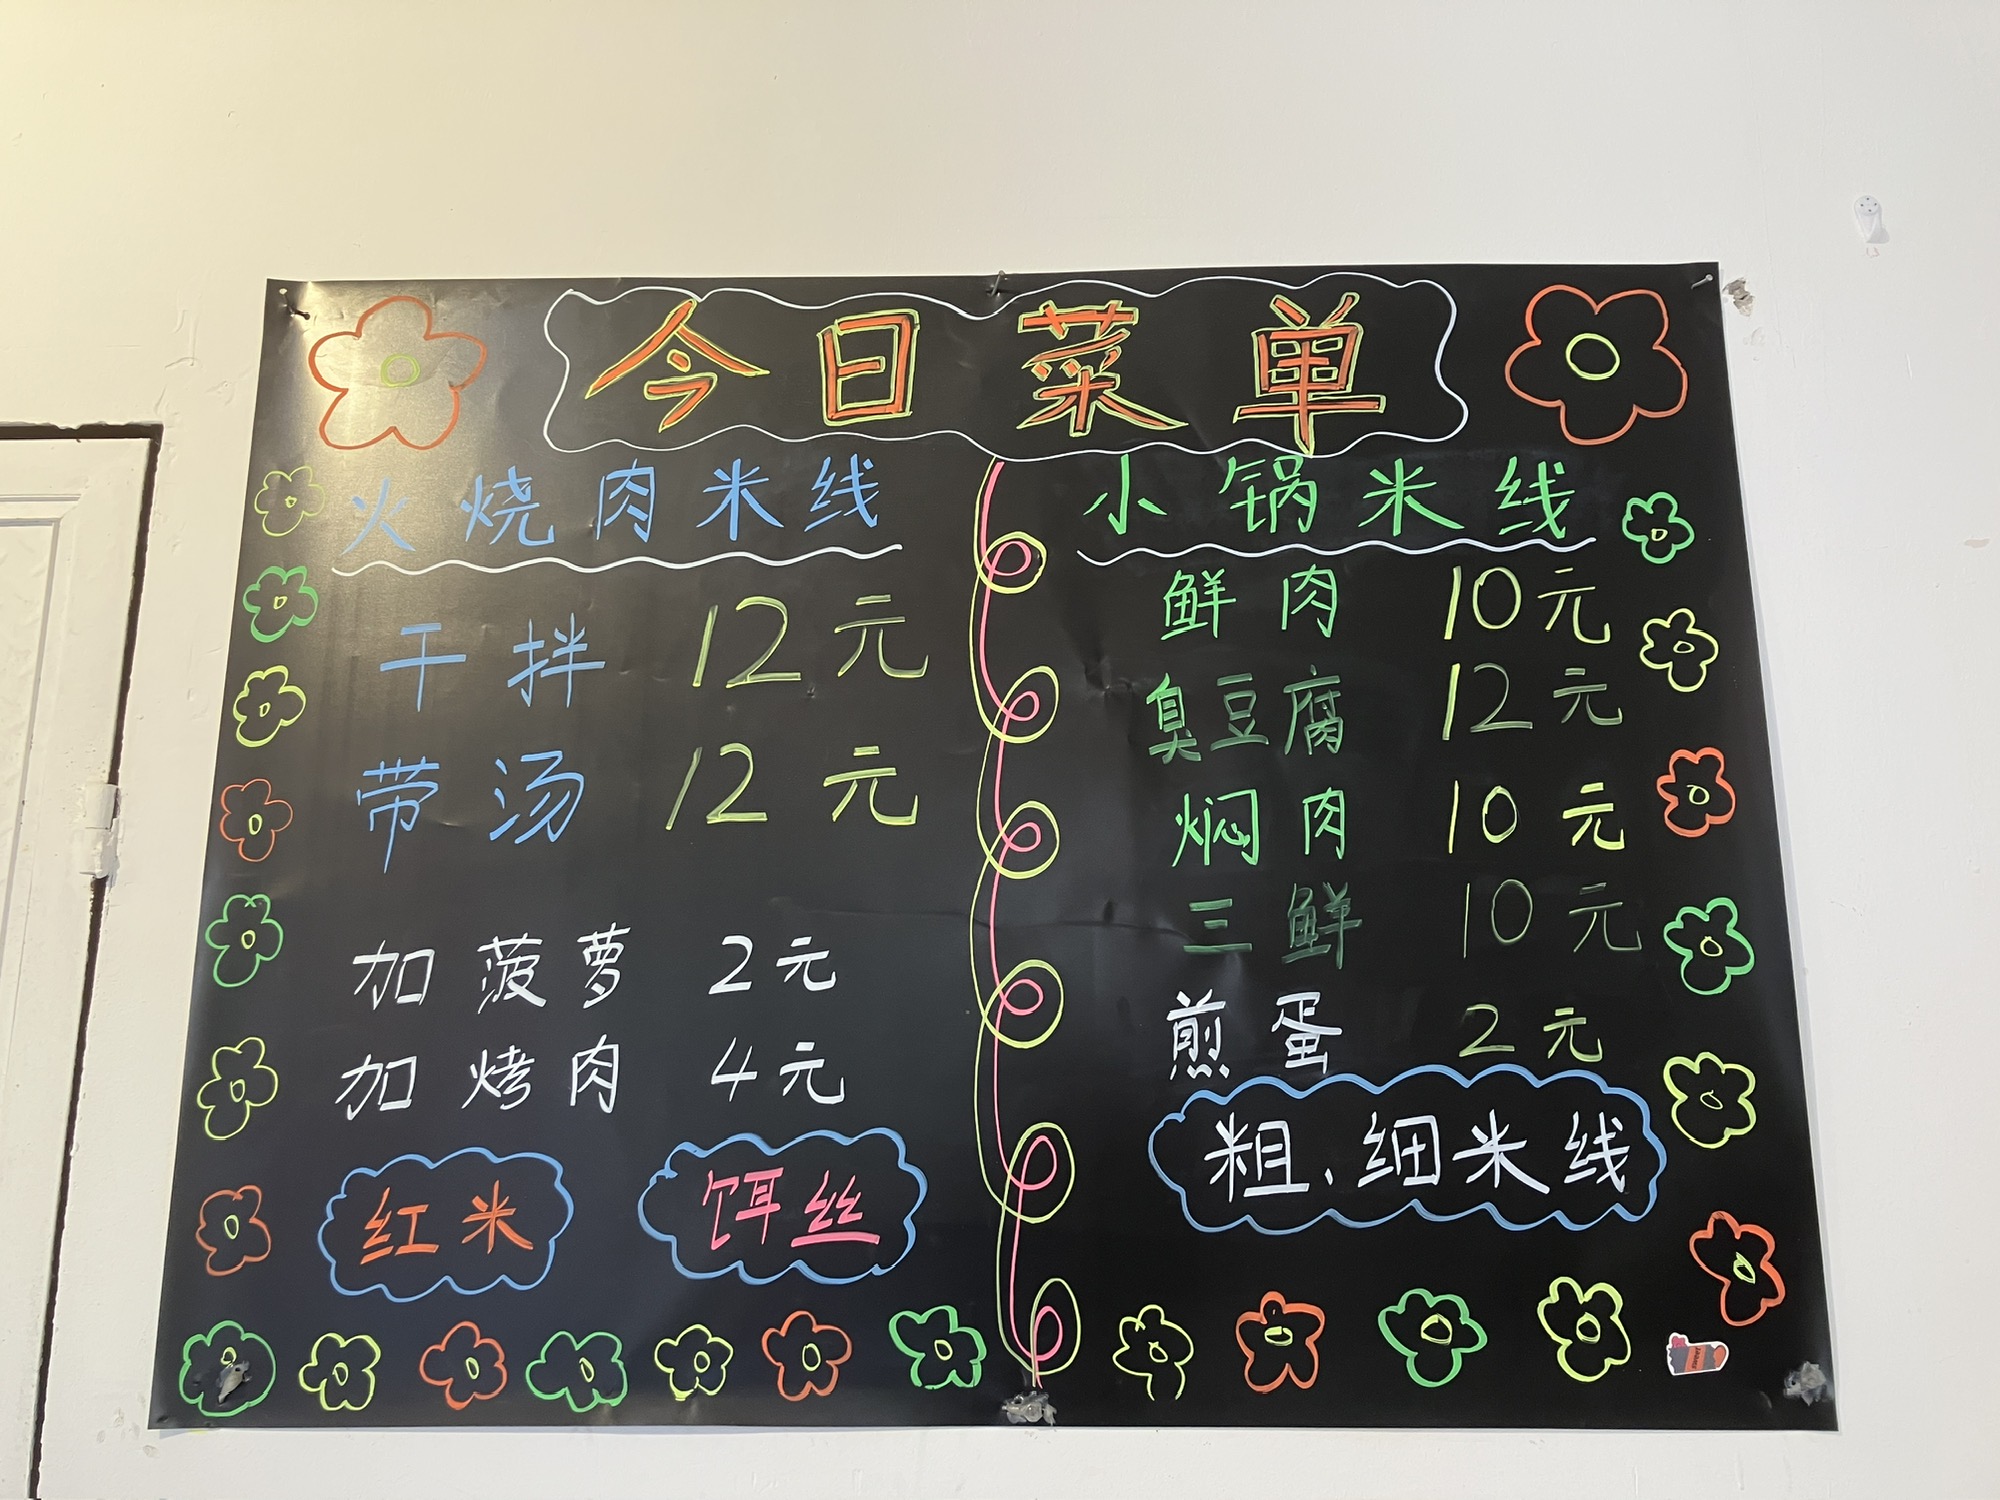 今日菜单
火烧肉米线
干拌 12元
带汤 12元
加菠萝 2元
加烤肉 4元
红米 饵丝
小锅米线
鲜肉 10元
臭豆腐 12元
焖肉 10元
三鲜 10元
煎蛋 2元
粗、细米线